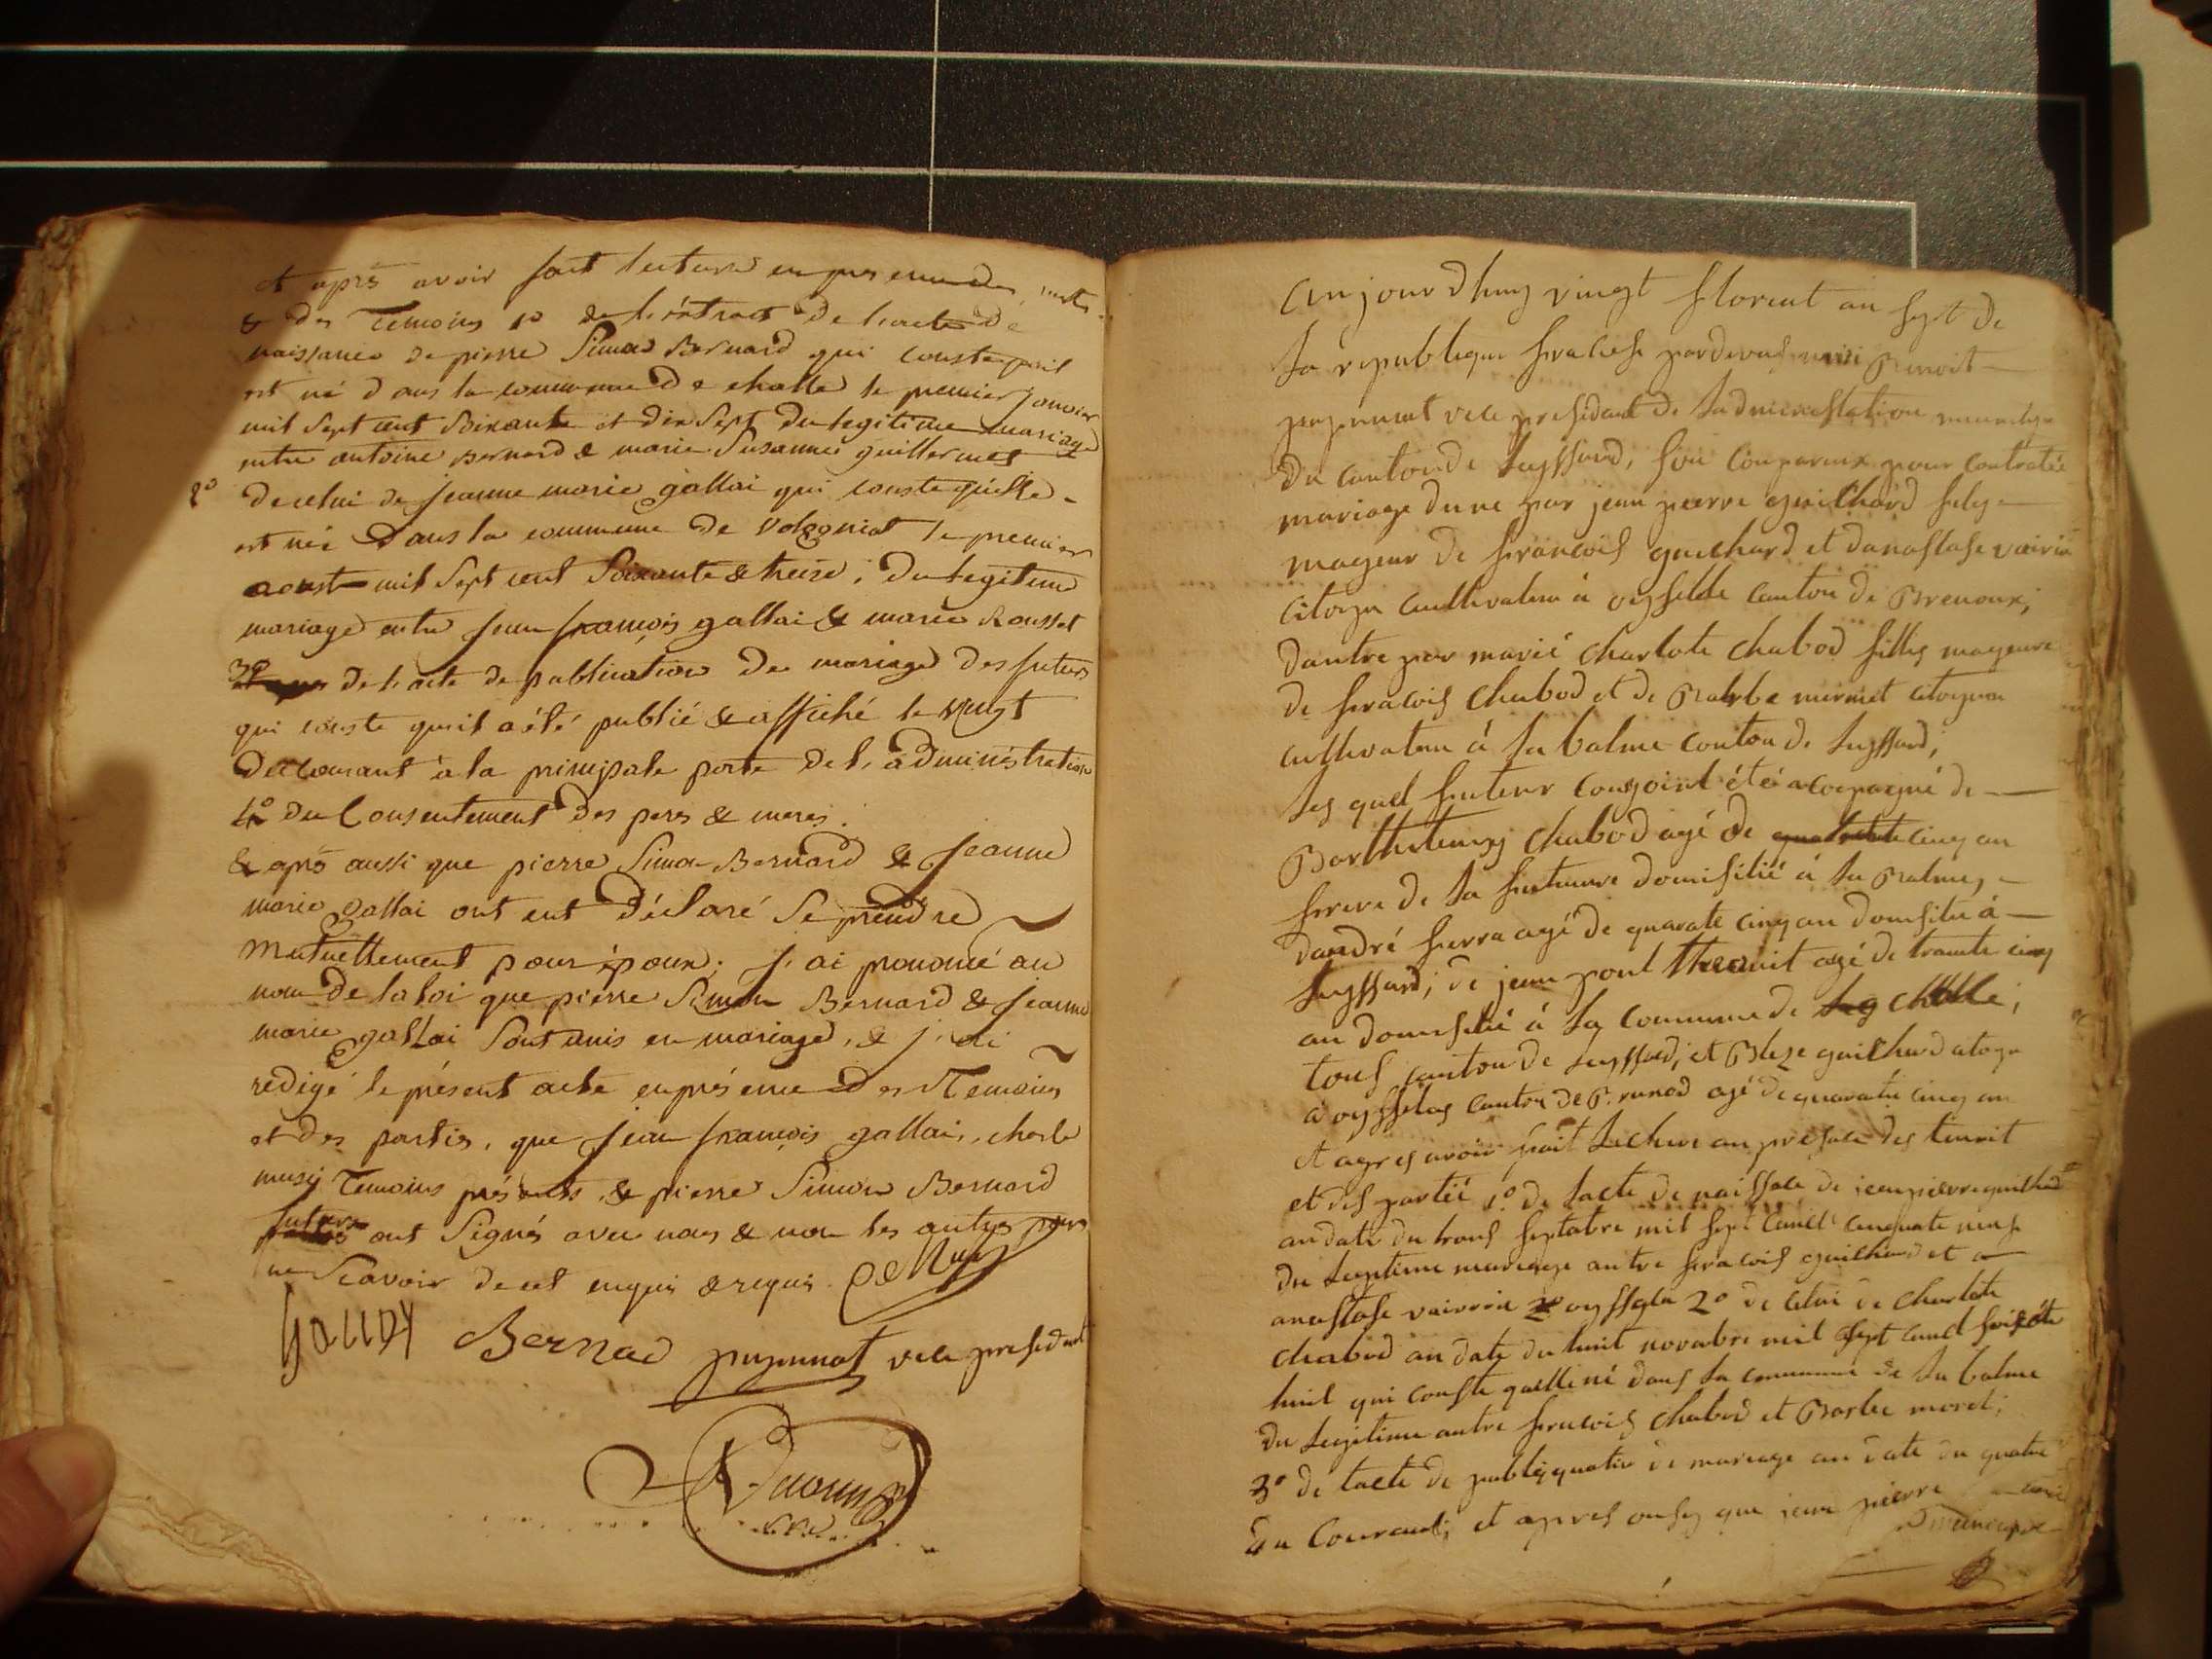 et après avoir fait lecture en presence des parties
& des Temoins 1º de l'extrait de l'acte de
naissance de pierre Simon Bernard qui conste quil
est né dans la commune de challe le premier janvier
mil sept cent soixante et dix sept du legitime mariage
entre antoine Bernard & marie Susanne guillermet
2º de celui de jeanne marie gallai qui conste qu'elle
est née dans la commune de Volognat le premier
aoust mil sept cent soixante & treize ; du legitime
mariage entre jean françois gallai & marie Rousset
3º de l'acte de publication de mariage des futurs
qui conste quil a été publié & affiché le vingt
du courant à la principale porte de l'administration
4º du Consentement des peres & meres.
& après aussi que pierre Simon Bernard & jeanne
marie gallai ont eut déclaré se prendre
mutuellement pour époux ; j'ai prononcé au
nom de la loi que pierre Simon Bernard & jeanne
marie gallai sont unis en mariage, & j'ai
redigé le présent acte en présence des Temoins
et des parties, que jean françois gallai, charle
musy Temoins présents & pierre Simon Bernard
futurs ont signés avec nous & non les autres pour
ne scavoir de cet enquis & requis.
GALLAY Bernad puzunat vice president
aujourdhuy vingt floreat an sept de
la republique fracese pardevant moi Benoit
puzunat vice presidant de ladmenestration municipa
du canton de Leyssard, son conpareux pour contratée
mariage dune par jean pierre guilhard fils
mageur de francois guechard et danastase vairin
citoyn cultivateu à oysselle canton de Brenoux;
dautre par marie charlote chabod fillis mageure
de fracois chabod et de Barbe mermet citoyen
cultivateu à la balme canton de Leyssard;
les quel futeur conjoint été acopagné de
Barthelemy chabod agé de cinq an
frere de la futeure domisilié à la Balme,
dandré ferra agé de quarate cinq an domsilié à
Leyssard; de jean pont agé de trante cinq
an domisilié à la commune de challe;
tous canton de Leyssard; et Bleze guilhard citoyn
à oysselas canton de Brunod agé de quarate cinq an
et apres avoir fait lecture an presace des temoit
et des partié 1º de lacte de naissace de jean pierre guilhard
an date du trois septabre mil sept cand cinquate neuf
du legitime mariage antre fracois guilhard et
anastase vairin oyssela 2º de celui de charlote
chabod an date du huit novabre mil sept cand soixate
huit qui conste quelle né dans la commune de la balme
du legitime antre fracois chabod et Barbe moret;
3º de lacte de publiquatio de mariage an date du quatre
du Courant; et apres ausy que jean pierre